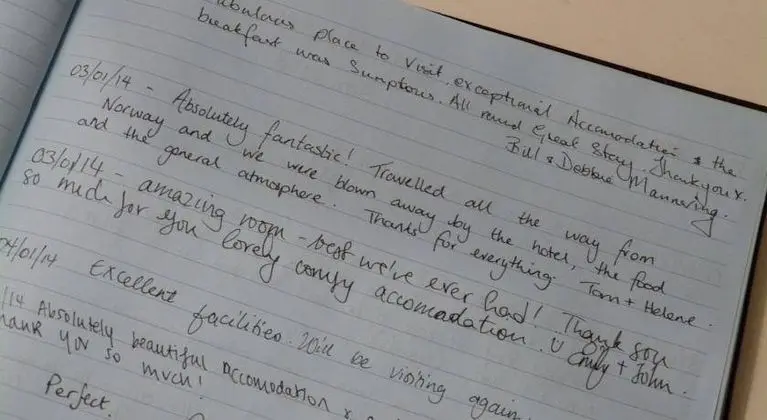 fabulous place to visit exceptional Accomodation & the
breakfast was Sumptous. All round Great Stay. Thankyou x.
Bill & Debbie Mannering.
03/01/14 - Absolutely fantastic! Travelled all the way from
Norway and we were blown away by the hotel, the food
and the general atmosphere. Thanks for everything. Tom + Helene.
03/01/14 - amazing room - best we've ever had! Thank you
so much for you lovely comfy accomodation. Emily + John.
04/01/14 Excellent facilities. Will be visiting again
/14 Absolutely beautiful accomodation &
thank you so much!
Perfect.